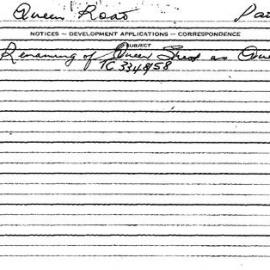 Queen Road Pa
NOTICES — DEVELOPMENT APPLICATIONS — CORRESPONDENCE
SUBJECT
Renaming of Queen Street as Que
TC 33448/58